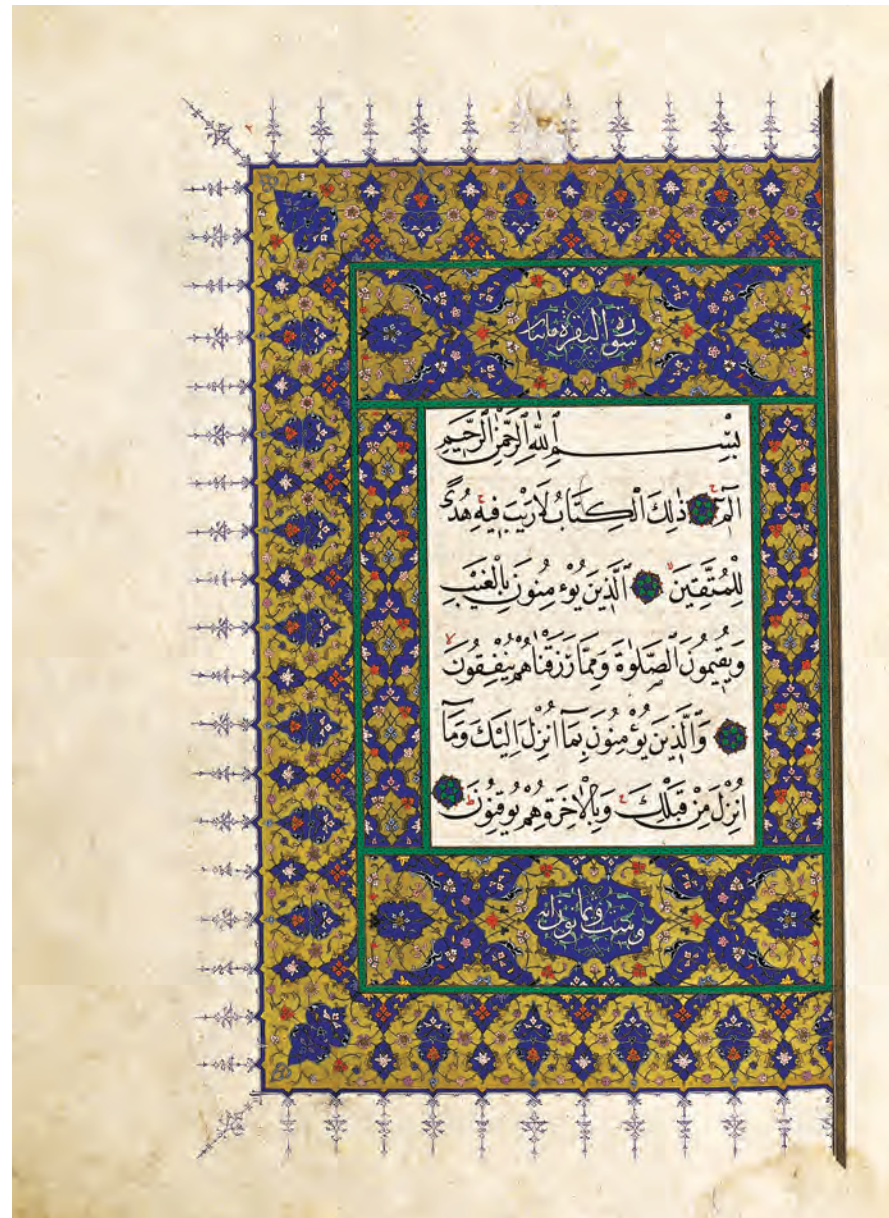 سورة البقرة مائتان
بِسْمِ ٱللّٰهِ ٱلرَّحْمٰنِ ٱلرَّحِيمِ
الٓمٓ ذٰلِكَ ٱلْكِتَابُ لَا رَيْبَ فِيهِ هُدًى
لِلْمُتَّقِينَ ٱلَّذِينَ يُؤْمِنُونَ بِالْغَيْبِ
وَيُقِيمُونَ ٱلصَّلٰوةَ وَمِمَّا رَزَقْنَاهُمْ يُنْفِقُونَ
وَٱلَّذِينَ يُؤْمِنُونَ بِمَٓا اُنْزِلَ اِلَيْكَ وَمَٓا
اُنْزِلَ مِنْ قَبْلِكَ وَبِالْاٰخِرَةِ هُمْ يُوقِنُونَ
وست وثمانون آية